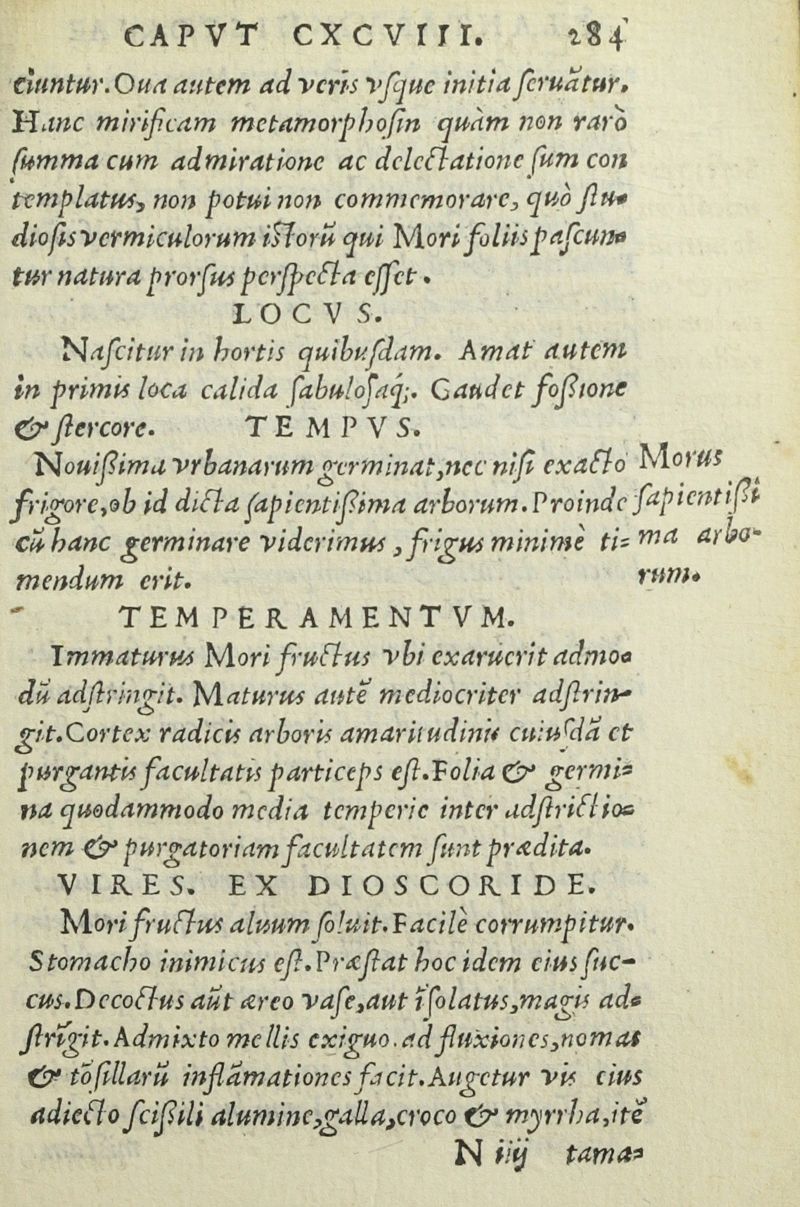 CAPVT CXCVIII. 284
ciuntur. Oua autem ad veris vſque initia ſeruãtur.
Hanc mirificam metamorphoſin quàm non rarò
ſumma cum admiratione ac delectatione ſum con
templatus, non potui non commemorare, quò ſtu-
dioſis vermiculorum iſtorũ qui Mori foliis paſcun-
tur natura prorſus perſpecta eſſet.
LOCVS.
Naſcitur in hortis quibuſdam. Amat autem
in primis loca calida ſabuloſaq́;. Gaudet foßione
& ſtercore. TEMPVS.
Nouißima vrbanarum germinat, nec niſi exacto
frigore, ob id dicta ſapientißima arborum. Proinde
cũ hanc germinare viderimus, frigus minimè ti-
mendum erit.
Morus
ſapientißi
ma arbo-
rum.
TEMPERAMENTVM.
Immaturus Mori fructus vbi exaruerit admo-
dũ adſtringit. Maturus autẽ mediocriter adſtrin-
git. Cortex radicis arboris amaritudinis cuiuſdã et
purgantis facultatis particeps eſt. Folia & germi-
na quodammodo media temperie inter adſtrictio-
nem & purgatoriam facultatem ſunt prædita.
VIRES. EX DIOSCORIDE.
Mori fructus aluum ſoluit. Facilè corrumpitur.
Stomacho inimicus eſt. Præſtat hoc idem eius ſuc-
cus. Decoctus aũt æreo vaſe, aut ĩſolatus, magis ad-
ſtrĩgit. Admixto mellis exiguo. ad fluxiones, nomas
& tõſillarũ inflãmationes facit. Augetur vis eius
adiecto ſcißili alumine, galla, croco & myrrha, itẽ
N iiij tama-